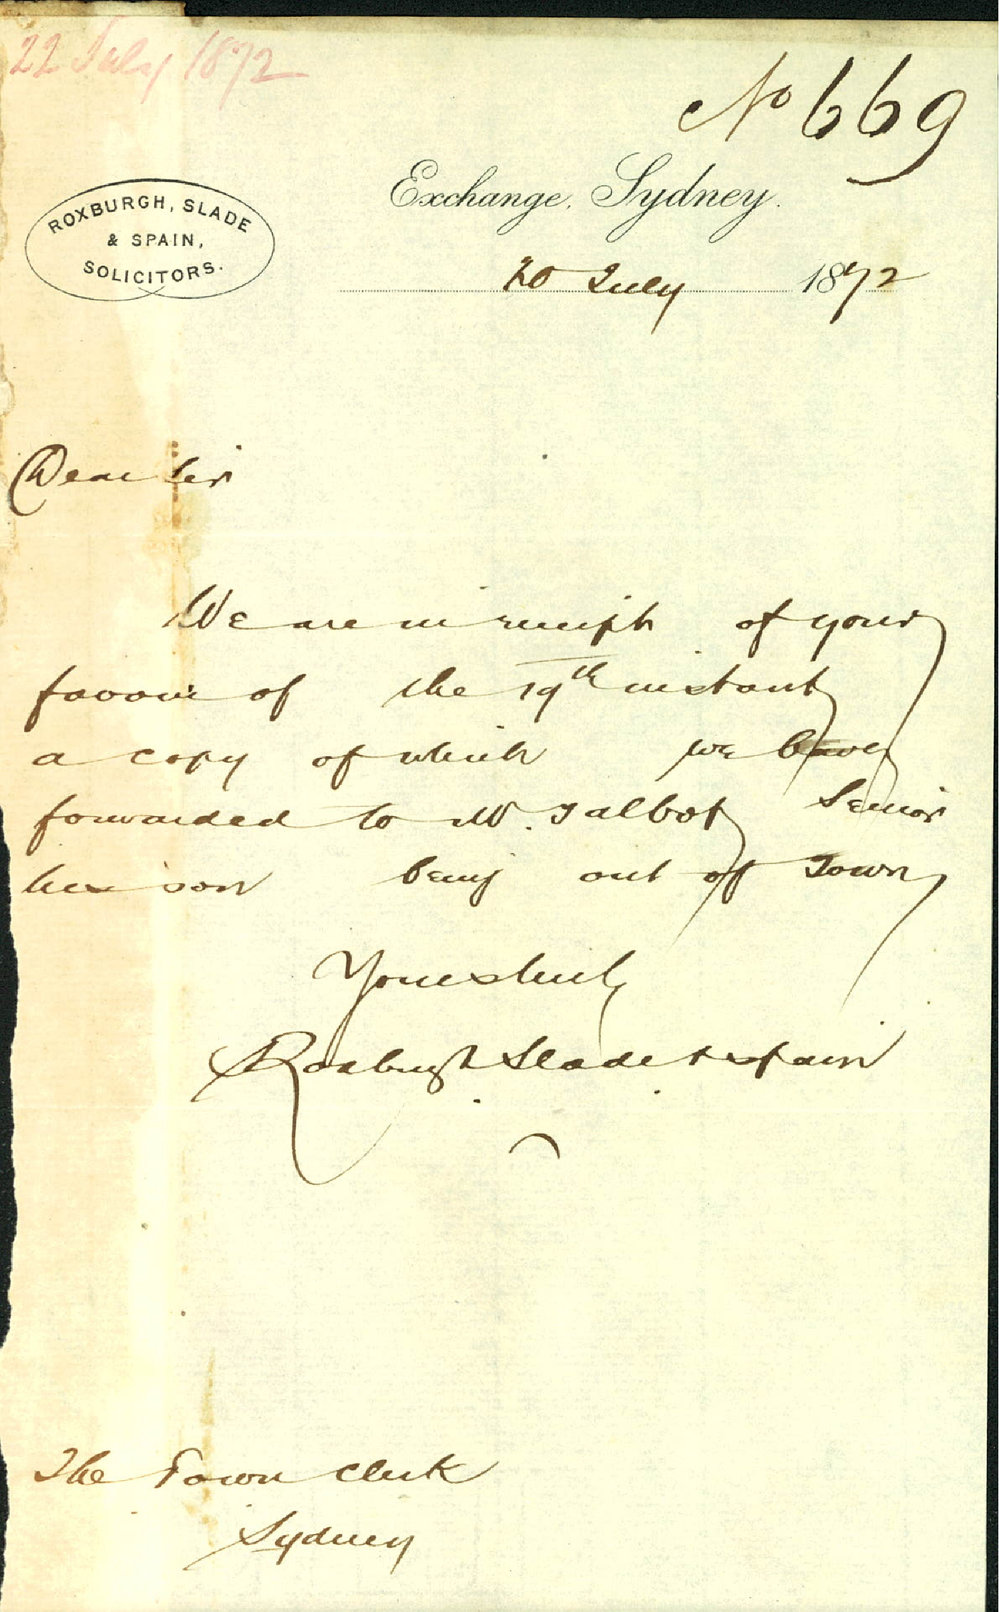 22 July 1872
No 669
Exchange, Sydney.
ROXBURGH, SLADE
& SPAIN,
SOLICITORS.
20 July 1872
Dear Sir
We are in receipt of your
favour of the 19th instant
a copy of which we have
forwarded to Mr. Talbot Senior
his son being out of Town
Yours truly
Roxburgh Slade & Spain
The Town Clerk
Sydney